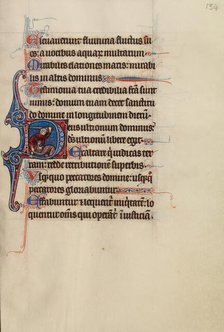 leuauerunt flumina fluctus su
os: a uocibus aquarum multarum.
Mirabiles elationes maris: mirabi
lis in altis dominus.
Testimonia tua credibilia facta
sunt nimis: domum tuam decet sancti
tudo domine in longitudinem dierum.
Deus ultionum dominus:
deus ultionum libere egit.
Exaltare qui iudicas ter
ram: redde retributionem superbis.
Usqquo peccatores domine: usqq
peccatores gloriabuntur.
Effabuntur et iniquitatem: lo
quentur omnes qui operant iniusticiam